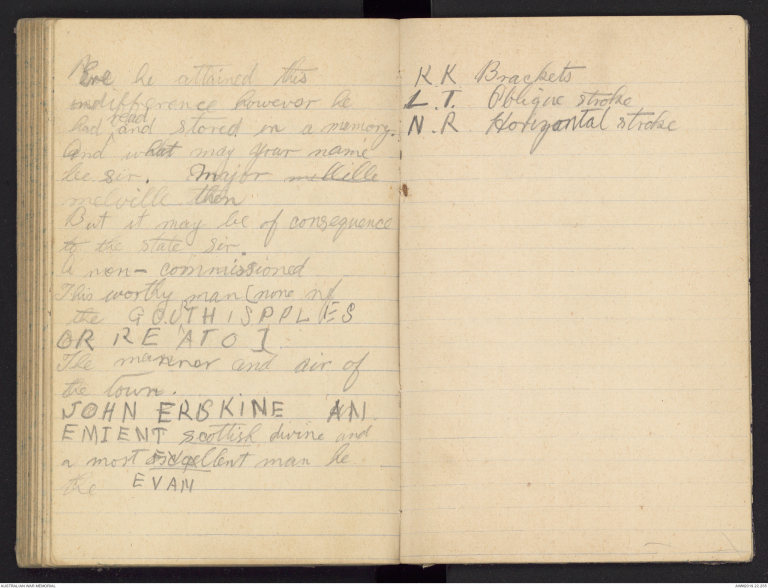 Ere he attained this
indifference however he
had read and stored in a memory.
And what may your name
be sir. Major mellille
melville then
But it may be of consequence
to the state sir.
A non-commissioned
This worthy man (none of
the GOUTHISPPLIES
OR RE ATO ].
The manner and air of
the town.
JOHN ERSKINE AN
EMIENT scottish divine and
a most excellent man he
the EVAN
K K Brackets
L.T. Oblique stroke
N.R. Horizontal stroke
AUSTRALIAN WAR MEMORIAL